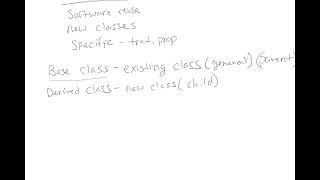 Software reuse
new classes
Specific - trait, prop
Base class - existing class (general) (parent)
Derived class - new class (child)